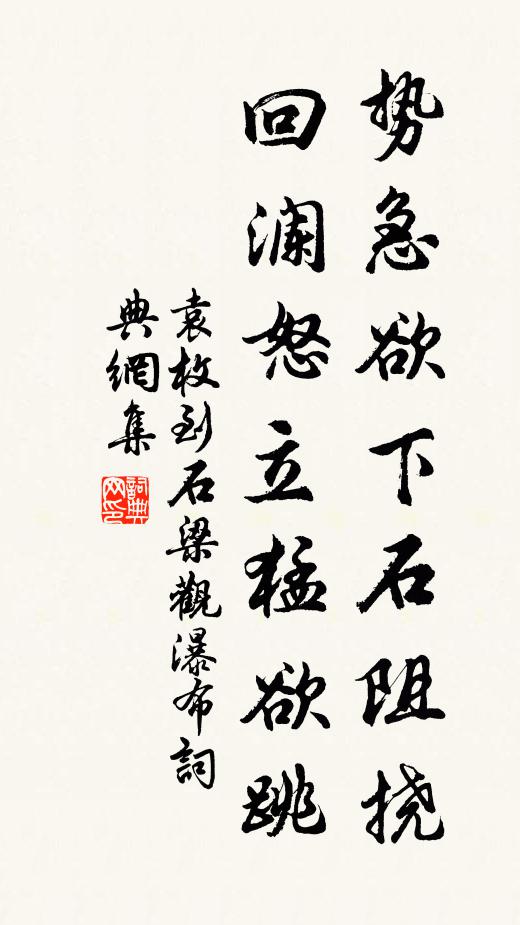 势急欲下石阻挠
回澜怒立猛欲跳
袁枚到石梁觀瀑布詞
典網集
詞典网印